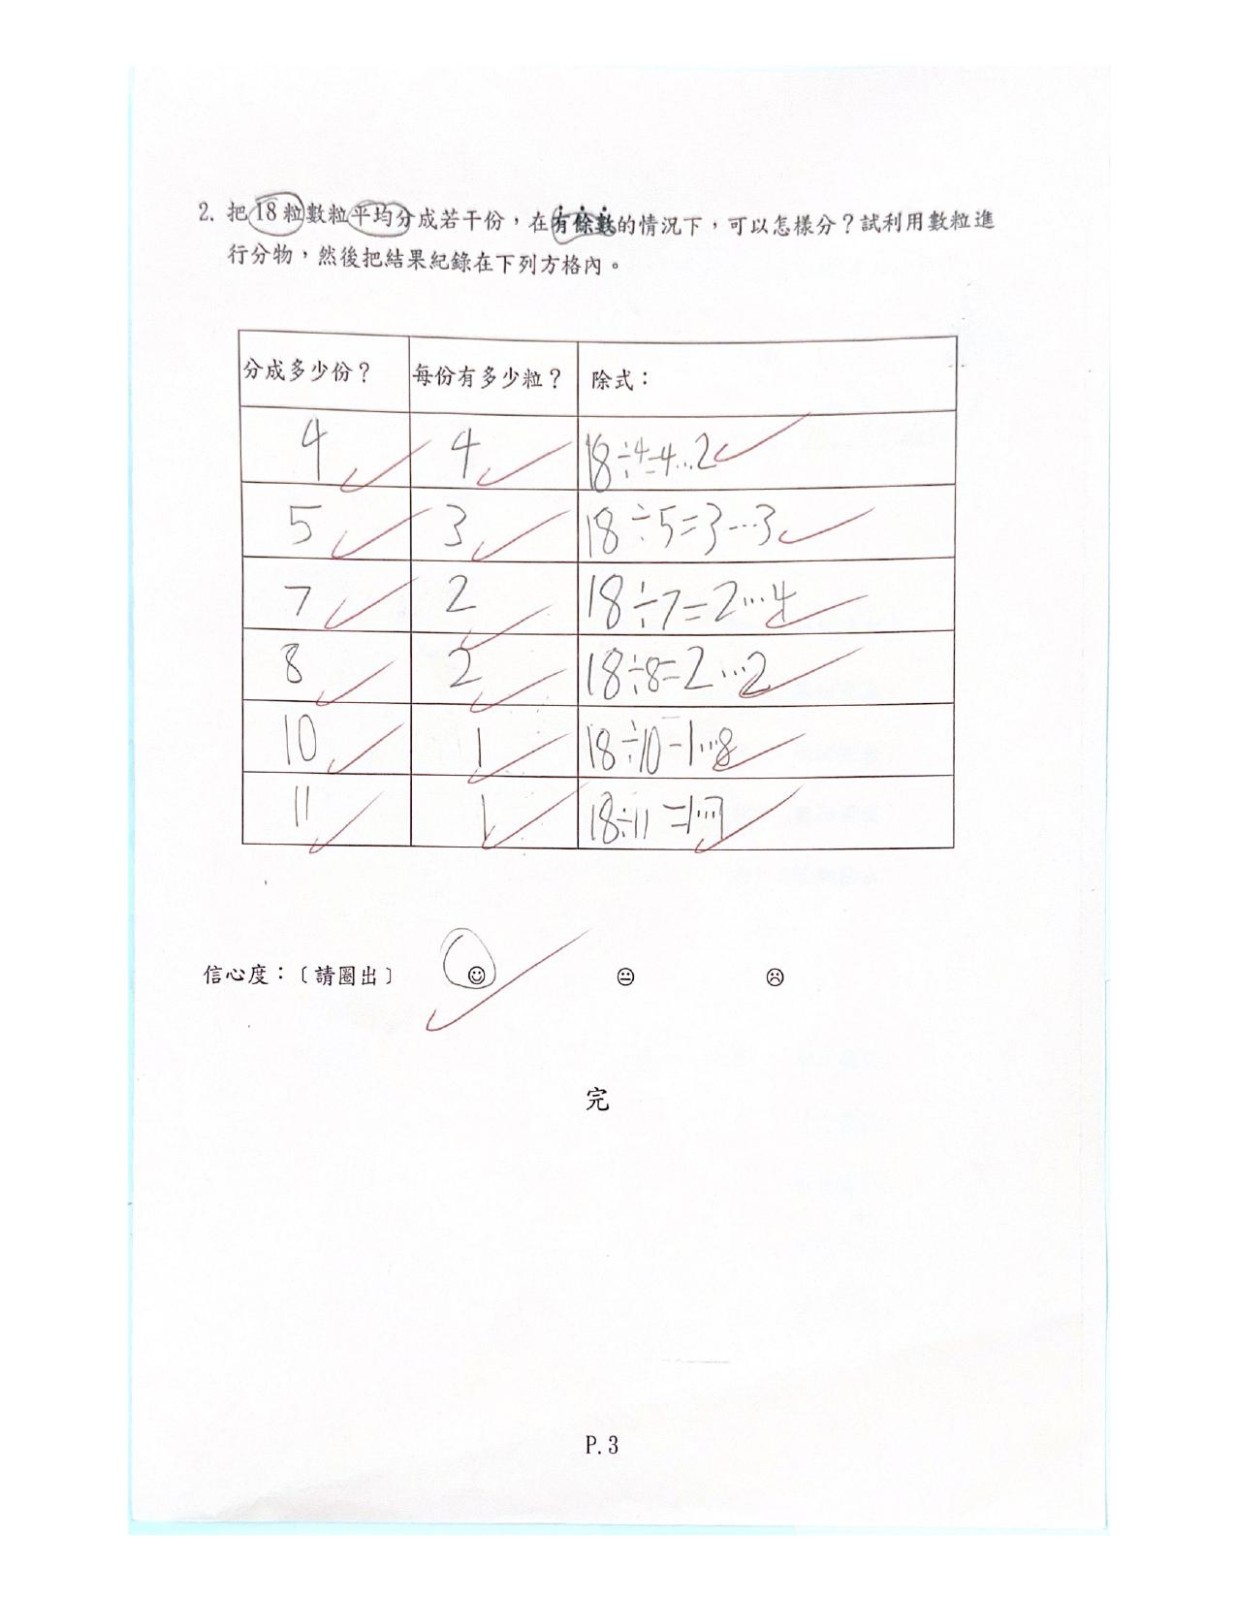 2. 把18粒數粒平均分成若干份，在有餘數的情況下，可以怎樣分？試利用數粒進
行分物，然後把結果紀錄在下列方格內。
分成多少份？ 每份有多少粒？ 除式：
4 4 18÷4=4...2
5 3 18÷5=3...3
7 2 18÷7=2...4
8 2 18÷8=2...2
10 1 18÷10=1...8
11 1 18÷11=1...7
信心度：〔請圈出〕 ☺ 😐 ☹
完
P.3